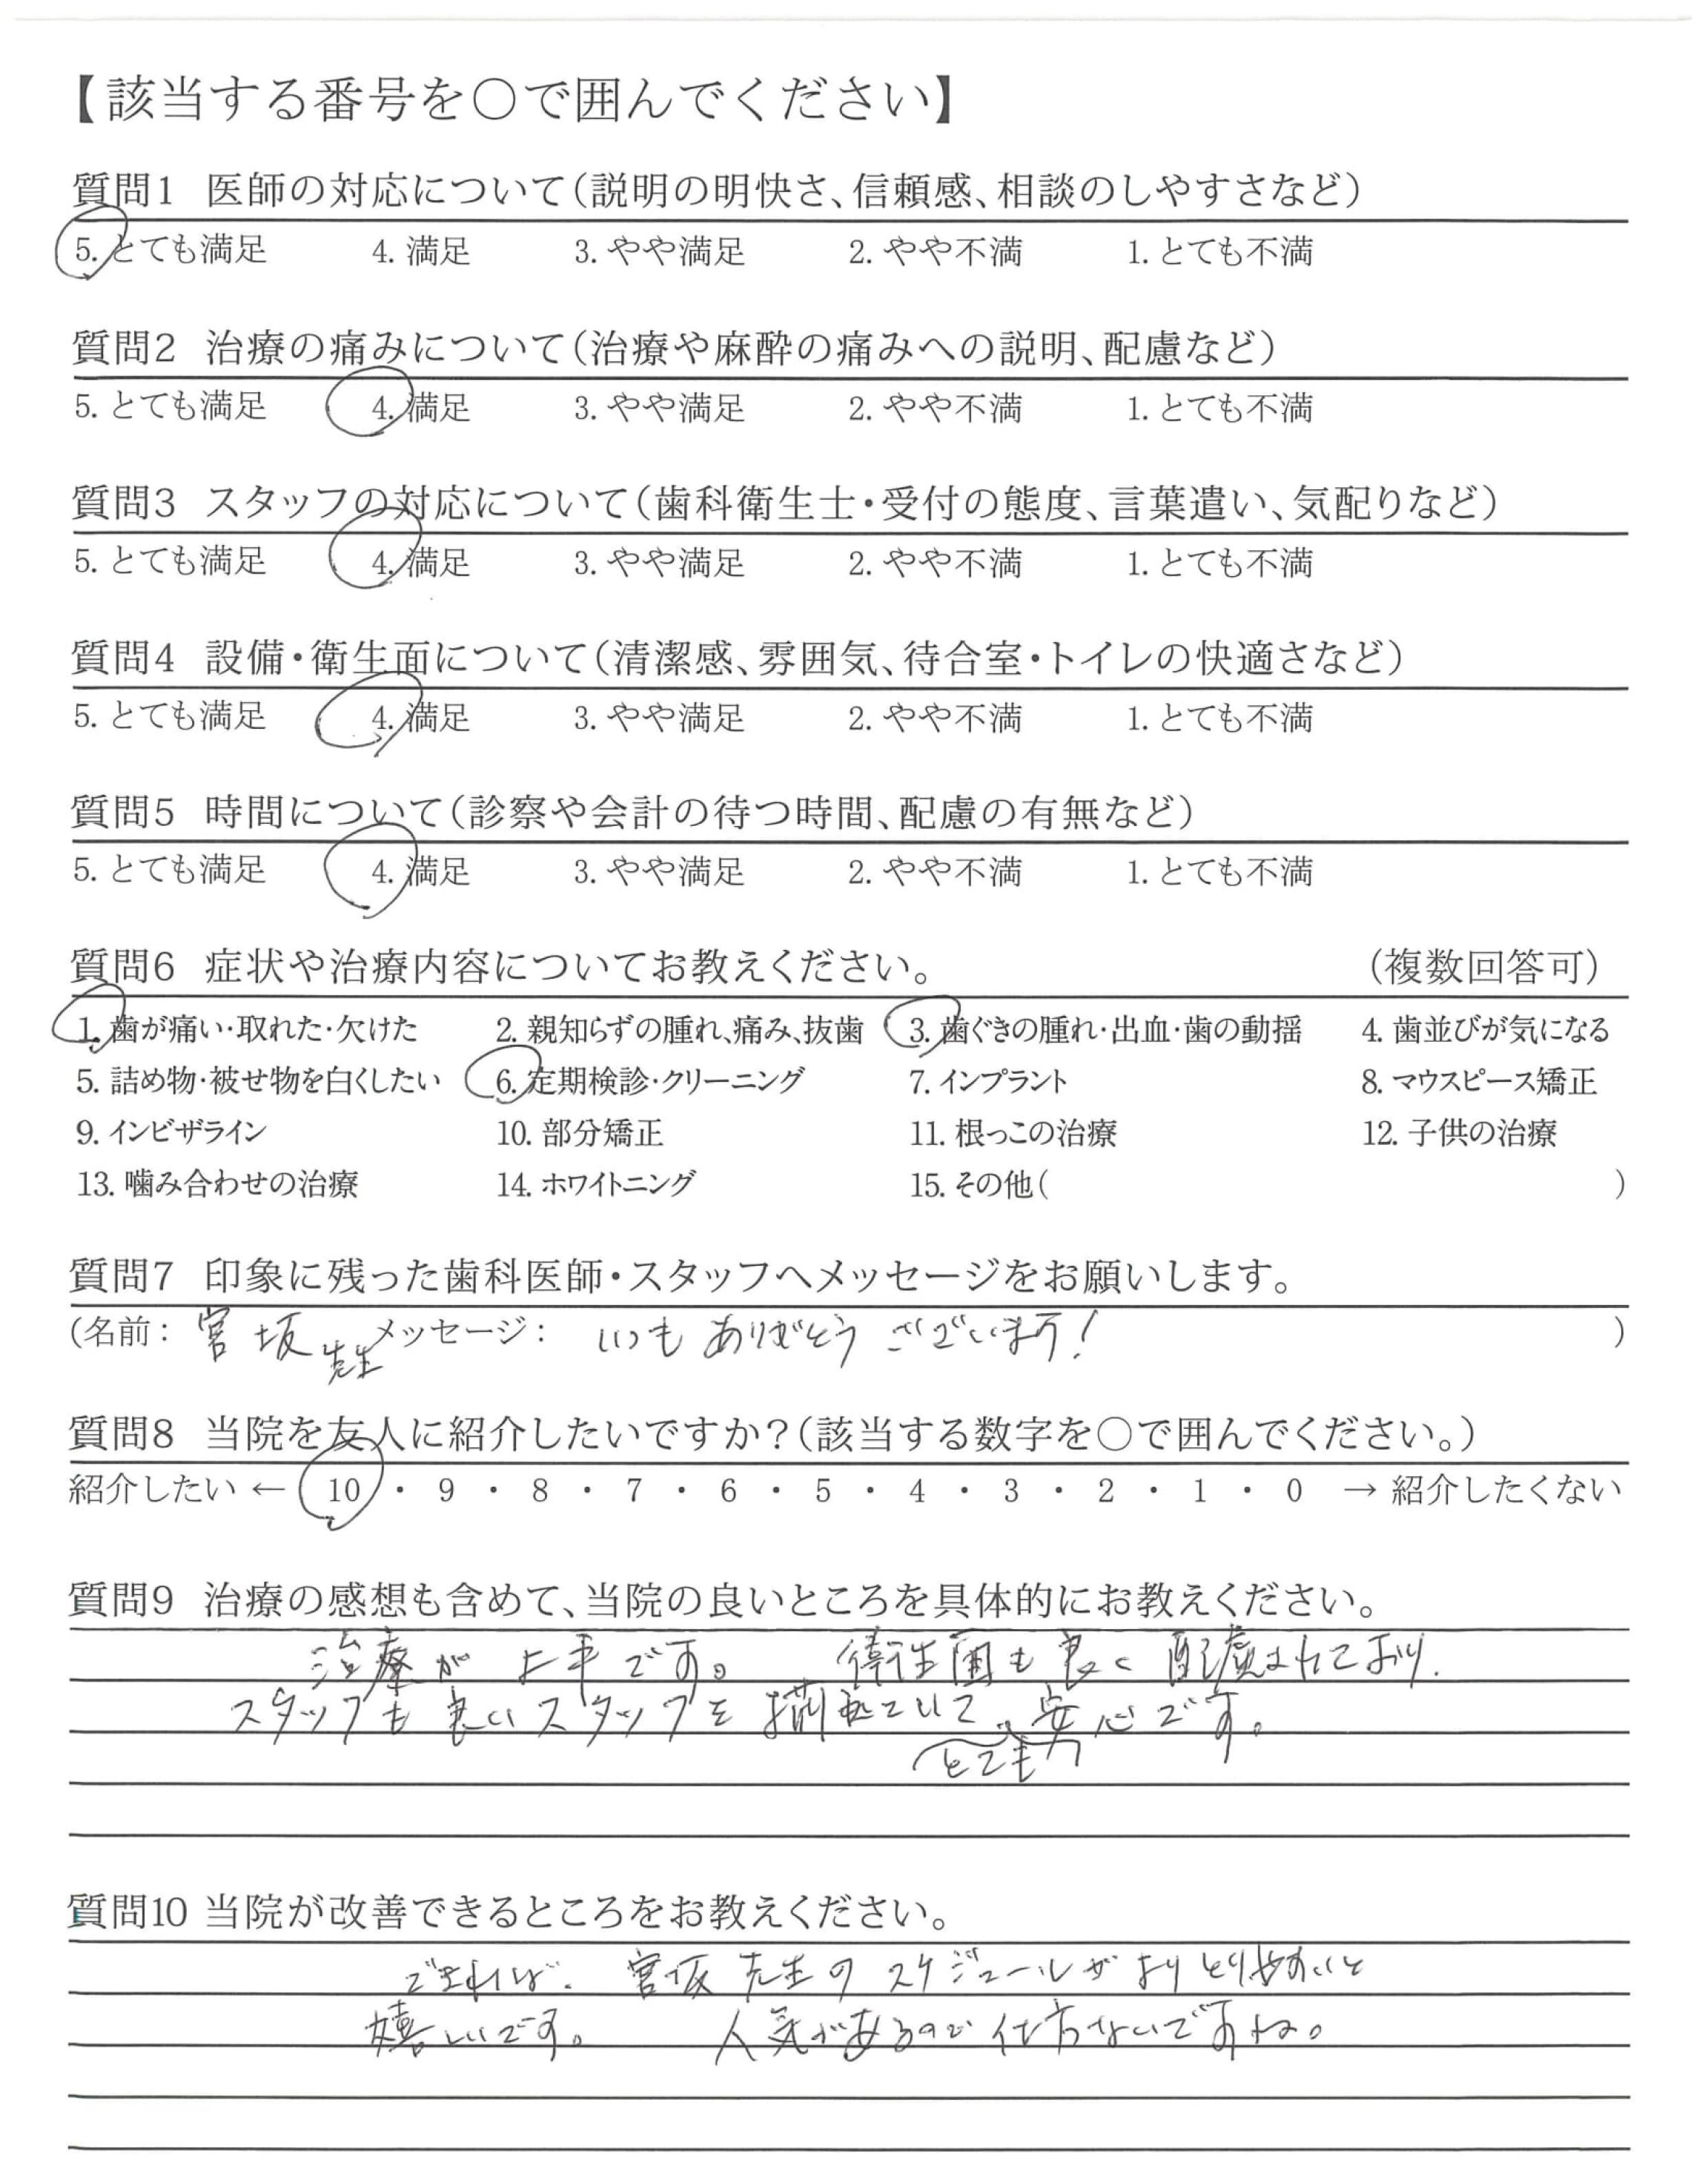 【該当する番号を○で囲んでください】
質問1 医師の対応について(説明の明快さ、信頼感、相談のしやすさなど)
5. とても満足 4. 満足 3. やや満足 2. やや不満 1. とても不満
質問2 治療の痛みについて(治療や麻酔の痛みへの説明、配慮など)
5. とても満足 4. 満足 3. やや満足 2. やや不満 1. とても不満
質問3 スタッフの対応について(歯科衛生士・受付の態度、言葉遣い、気配りなど)
5. とても満足 4. 満足 3. やや満足 2. やや不満 1. とても不満
質問4 設備・衛生面について(清潔感、雰囲気、待合室・トイレの快適さなど)
5. とても満足 4. 満足 3. やや満足 2. やや不満 1. とても不満
質問5 時間について(診察や会計の待つ時間、配慮の有無など)
5. とても満足 4. 満足 3. やや満足 2. やや不満 1. とても不満
質問6 症状や治療内容についてお教えください。 (複数回答可)
1. 歯が痛い・取れた・欠けた 2. 親知らずの腫れ、痛み、抜歯 3. 歯ぐきの腫れ・出血・歯の動揺 4. 歯並びが気になる
5. 詰め物・被せ物を白くしたい 6. 定期検診・クリーニング 7. インプラント 8. マウスピース矯正
9. インビザライン 10. 部分矯正 11. 根っこの治療 12. 子供の治療
13. 噛み合わせの治療 14. ホワイトニング 15. その他( )
質問7 印象に残った歯科医師・スタッフへメッセージをお願いします。
(名前: 宮坂先生 メッセージ: いつもありがとうございます! )
質問8 当院を友人に紹介したいですか?(該当する数字を○で囲んでください。)
紹介したい ← 10 ・ 9 ・ 8 ・ 7 ・ 6 ・ 5 ・ 4 ・ 3 ・ 2 ・ 1 ・ 0 → 紹介したくない
質問9 治療の感想も含めて、当院の良いところを具体的にお教えください。
治療が上手です。 衛生面も良く配慮されており、
スタッフも良いスタッフを揃えていて、安心です。
とても
質問10 当院が改善できるところをお教えください。
できれば、宮坂先生のスケジュールがよりとりやすいと
嬉しいです。 人気があるので仕方ないですね。